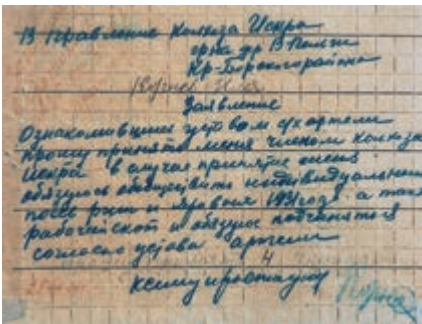 В правление колхоза Искра
гр-на др. В
Кр-Борского района
Заявление
Ознакомившись уставом с/х артели
прошу принять меня членом колхоза
Искра в случае принятие меня
обязуюсь обобществить индивидуальный
посев ржи и яровой 1931 года а так
рабочий скот и обязуюсь подчиняться
согласно устава артели
к сему